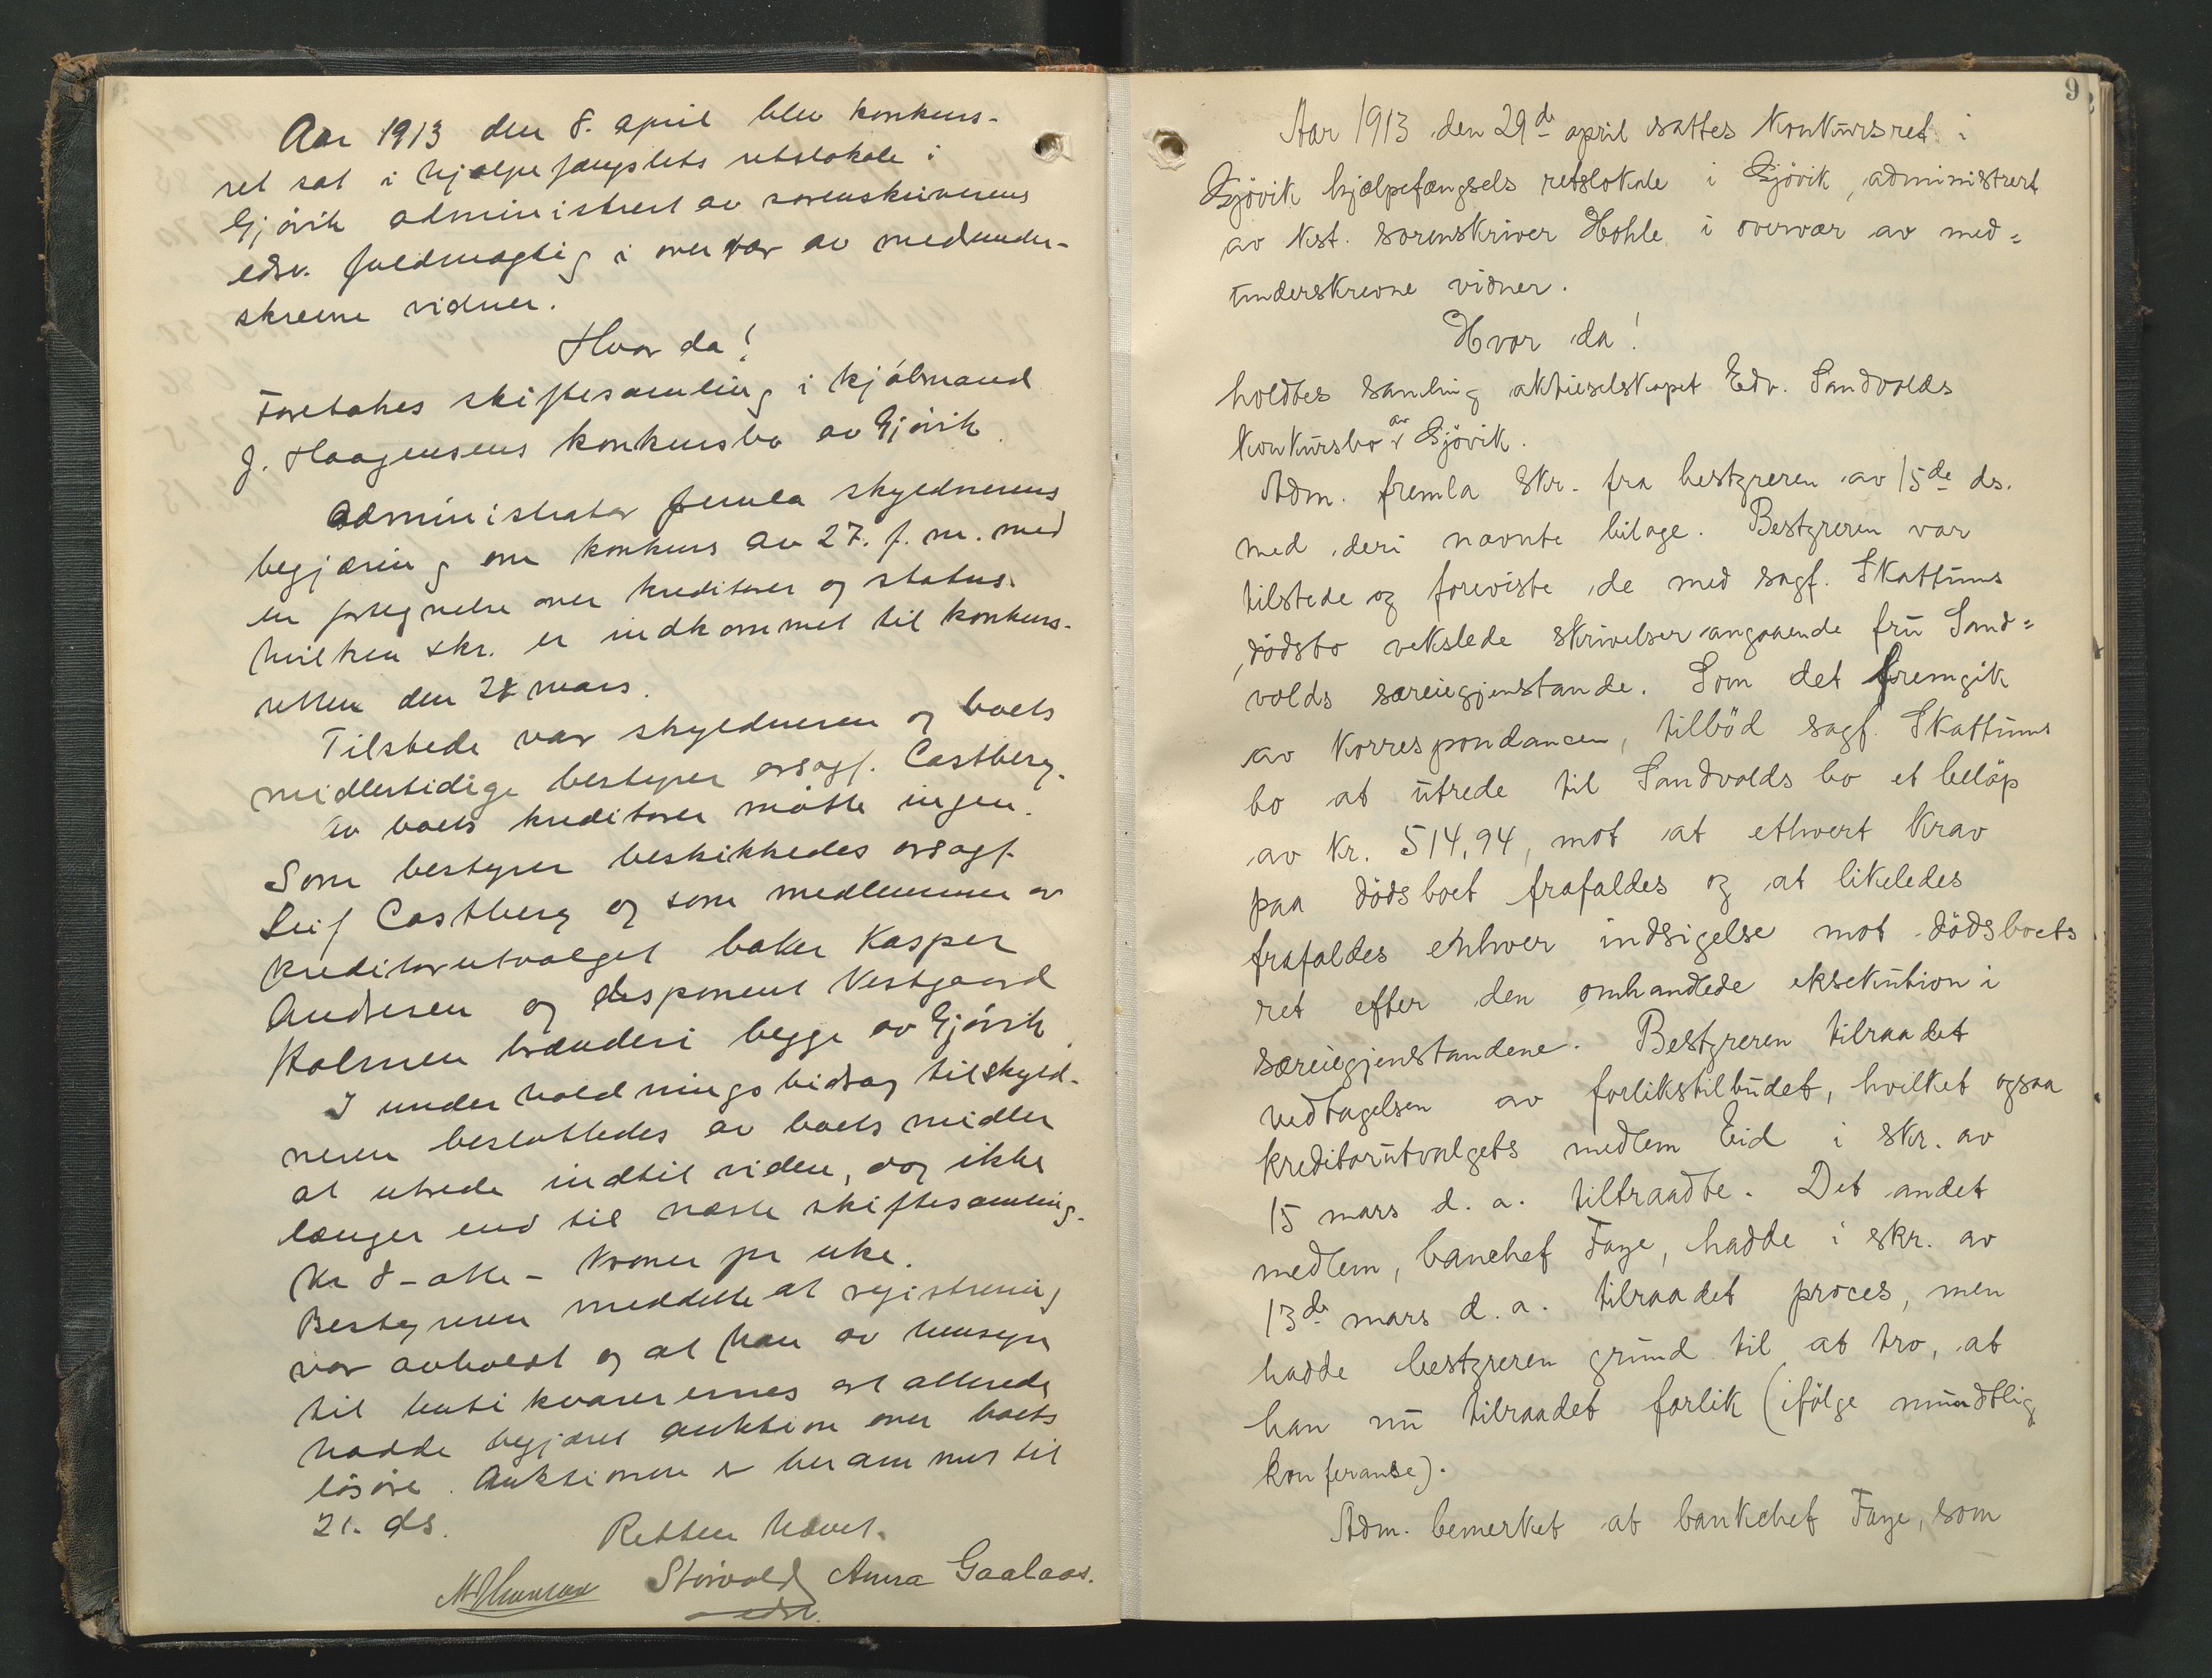 Aar 1913 den 8. april blev konkurs-
ret sat i hjælpefængslets retslokale i
Gjøvik administrert av sorenskriverens
edsv. fuldmægtig i overvær av medunder-
skrevne vidner.
Hvor da!
Foretokes skiftesamling i kjøbmand
J. Haagensens konkursbo av Gjøvik.
Administrator fremla skyldnerens
begjæring om konkurs av 27. f. m. med
en fortegnelse over kreditorer og status.
hvilken skr. er indkommet til konkurs-
retten den 28 mars.
Tilstede var skyldneren og boets
midlertidige bestyrer orsagf. Castberg.
Av boets kreditorer møtte ingen.
Som bestyrer beskikkedes orsagf.
Leif Castberg og som medlemmer av
kreditorutvalget baker Kasper
Andresen og disponent Vestgaard
Holmen brænderi begge av Gjøvik.
I underholdningsbidrag til skyld-
neren besluttedes av boets midler
at utrede indtil videre, dog ikke
længer end til næste skiftesamling.
Kr 8 - otte - kroner pr uke.
Bestyreren meddelte at registrering
var avholdt og at han av hensyn
til butikvarernes art allerede
hadde begjært auktion over boets
løsøre. Auktionen er berammet til
21. ds.
Retten hævet.
Storvold Anna Gaalaas.
edsv.
9
Aar 1913 den 29de april sattes konkursret i
Gjövik hjælpefængsels retslokale i Gjövik, administrert
av kst. sorenskriver Hohle i overvær av med=
underskrevne vidner.
Hvor da!
holdtes samling aktieselskapet Edv. Sandvolds
konkursbo av Gjövik.
Adm. fremla skr. fra bestyreren av 15de ds.
med deri nævnte bilage. Bestyreren var
tilstede og foreviste de med sagf. Skattums
dödsbo vekslede skrivelser angaaende fru Sand=
volds særeiegjenstande. Som det fremgik
av korrespondancen, tilböd sagf. Skattums
bo at utrede til Sandvolds bo et belöp
av kr. 514,94, mot at ethvert krav
paa dödsboet frafaldes og at likeledes
frafaldes enhver indsigelse mot dödsboets
ret efter den omhandlede eksekution i
særeiegjenstandene. Bestyreren tilraadet
vedtagelsen av forlikstilbudet, hvilket ogsaa
kreditorutvalgets medlem Eid i skr. av
15 mars d. a. tiltraadte. Det andet
medlem, banchef Faye, hadde i skr. av
13de mars d. a. tilraadet proces, men
hadde bestyreren grund til at tro, at
han nu tilraadet forlik (ifölge mundtlig
konferanse).
Adm. bemerket at bankchef Faye, som